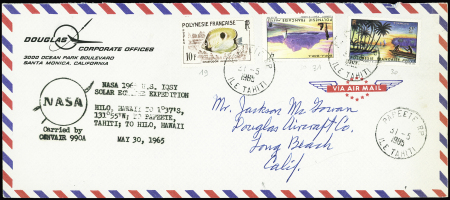 DOUGLAS
CORPORATE OFFICES
3000 OCEAN PARK BOULEVARD
SANTA MONICA, CALIFORNIA
POLYNÉSIE FRANÇAISE
10F
NASA
NASA 1965
SOLAR ECLIPSE EXPEDITION
HILO, HAWAII TO 1°37'S,
131°55'W; TO PAPEETE,
TAHITI; TO HILO, HAWAII
MAY 30, 1965
Carried by
CONVAIR 990A
VIA AIR MAIL
PAPEETE RP
31-5
1965
ILE TAHITI
31-5
1965
ILE TAHITI
Mr. Jackson Mc Gowan
Douglas Aircraft Co.
Long Beach
Calif.